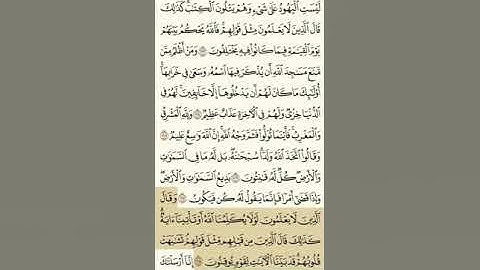 لَيْسَتِ ٱلْيَهُودُ عَلَىٰ شَىْءٍ وَهُمْ يَتْلُونَ ٱلْكِتَٰبَ كَذَٰلِكَ
قَالَ ٱلَّذِينَ لَا يَعْلَمُونَ مِثْلَ قَوْلِهِمْ فَٱللَّهُ يَحْكُمُ بَيْنَهُمْ
يَوْمَ ٱلْقِيَٰمَةِ فِيمَا كَانُوا۟ فِيهِ يَخْتَلِفُونَ وَمَنْ أَظْلَمُ مِمَّن
مَّنَعَ مَسَٰجِدَ ٱللَّهِ أَن يُذْكَرَ فِيهَا ٱسْمُهُۥ وَسَعَىٰ فِى خَرَابِهَآ
أُو۟لَٰٓئِكَ مَا كَانَ لَهُمْ أَن يَدْخُلُوهَآ إِلَّا خَآئِفِينَ لَهُمْ فِى
ٱلدُّنْيَا خِزْىٌ وَلَهُمْ فِى ٱلْءَاخِرَةِ عَذَابٌ عَظِيمٌ وَلِلَّهِ ٱلْمَشْرِقُ
وَٱلْمَغْرِبُ فَأَيْنَمَا تُوَلُّوا۟ فَثَمَّ وَجْهُ ٱللَّهِ إِنَّ ٱللَّهَ وَٰسِعٌ عَلِيمٌ
وَقَالُوا۟ ٱتَّخَذَ ٱللَّهُ وَلَدًا سُبْحَٰنَهُۥ بَل لَّهُۥ مَا فِى ٱلسَّمَٰوَٰتِ
وَٱلْأَرْضِ كُلٌّ لَّهُۥ قَٰنِتُونَ بَدِيعُ ٱلسَّمَٰوَٰتِ وَٱلْأَرْضِ
وَإِذَا قَضَىٰٓ أَمْرًا فَإِنَّمَا يَقُولُ لَهُۥ كُن فَيَكُونُ وَقَالَ
ٱلَّذِينَ لَا يَعْلَمُونَ لَوْلَا يُكَلِّمُنَا ٱللَّهُ أَوْ تَأْتِينَآ ءَايَةٌ
كَذَٰلِكَ قَالَ ٱلَّذِينَ مِن قَبْلِهِم مِّثْلَ قَوْلِهِمْ تَشَٰبَهَتْ
قُلُوبُهُمْ قَدْ بَيَّنَّا ٱلْءَايَٰتِ لِقَوْمٍ يُوقِنُونَ إِنَّآ أَرْسَلْنَٰكَ